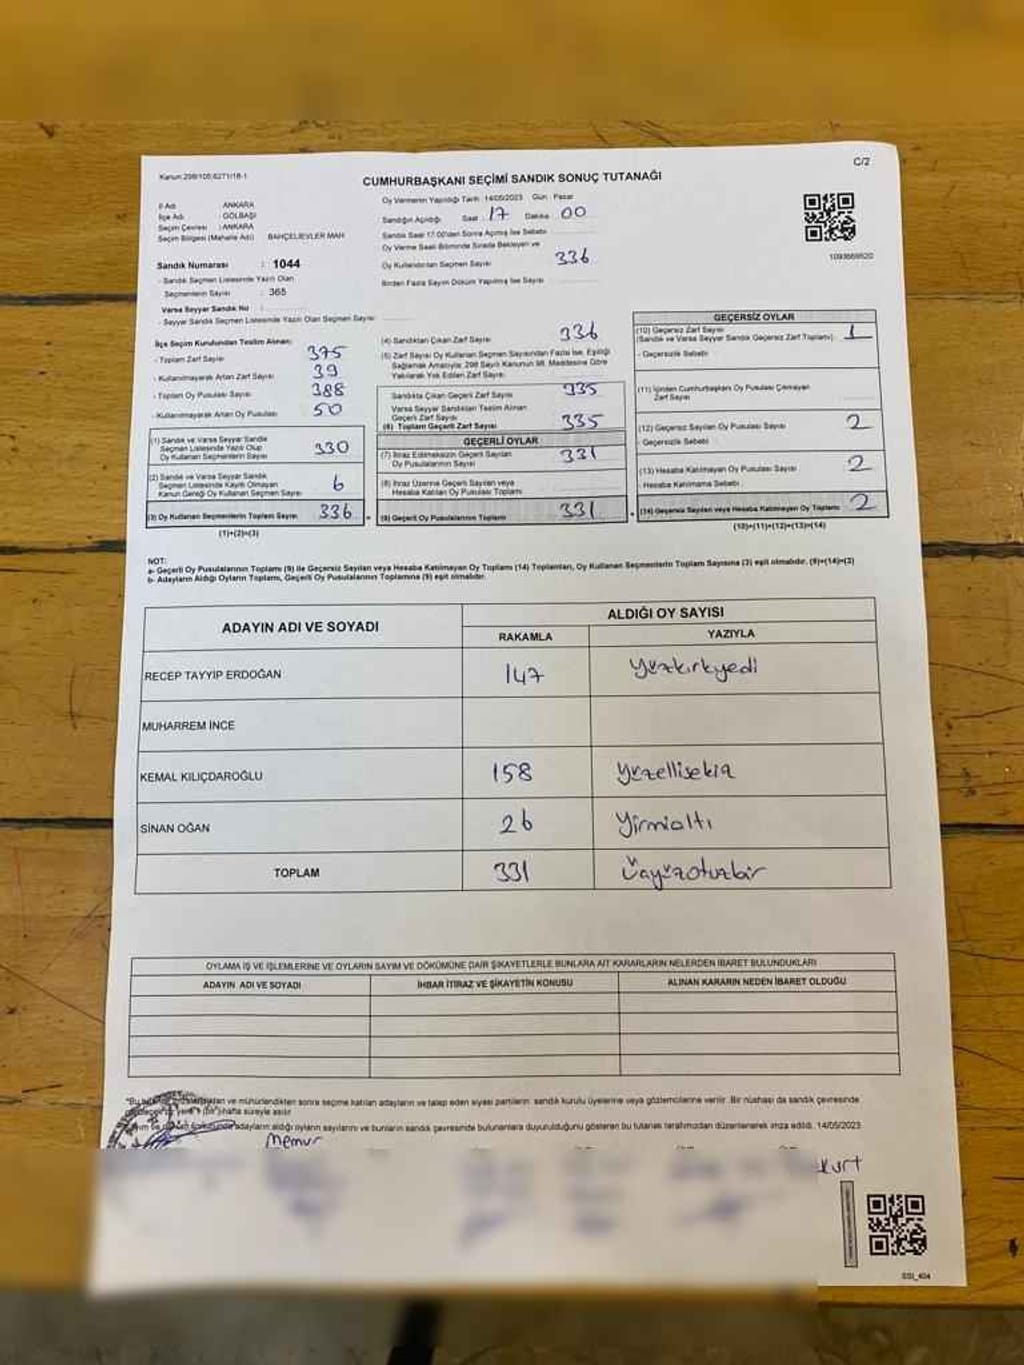 C/2
Kanun:298/105;6271/18-1
CUMHURBAŞKANI SEÇİMİ SANDIK SONUÇ TUTANAĞI
1093669520
İl Adı : ANKARA
İlçe Adı : GÖLBAŞI
Seçim Çevresi : ANKARA
Seçim Bölgesi (Mahalle Adı) BAHÇELİEVLER MAH
Sandık Numarası : 1044
- Sandık Seçmen Listesinde Yazılı Olan
Seçmenlerin Sayısı : 365
Varsa Seyyar Sandık No :
- Seyyar Sandık Seçmen Listesinde Yazılı Olan Seçmen Sayısı:
Oy Vermenin Yapıldığı Tarih :14/05/2023 Gün : Pazar
Sandığın Açıldığı Saat : 17 Dakika : 00
Sandık Saat 17.00'den Sonra Açılmış İse Sebebi :
Oy Verme Saati Bitiminde Sırada Bekleyen ve
Oy Kullandırılan Seçmen Sayısı 336
Birden Fazla Sayım Döküm Yapılmış İse Sayısı
İlçe Seçim Kurulundan Teslim Alınan:
- Toplam Zarf Sayısı : 375
- Kullanılmayarak Artan Zarf Sayısı : 39
- Toplam Oy Pusulası Sayısı : 388
- Kullanılmayarak Artan Oy Pusulası : 50
(1) Sandık ve Varsa Seyyar Sandık
Seçmen Listesinde Yazılı Olup
Oy Kullanan Seçmenlerin Sayısı 330
(2) Sandık ve Varsa Seyyar Sandık
Seçmen Listesinde Kayıtlı Olmayan
Kanun Gereği Oy Kullanan Seçmen Sayısı : 6
(3) Oy Kullanan Seçmenlerin Toplam Sayısı: 336
(1)+(2)=(3)
(4) Sandıktan Çıkan Zarf Sayısı: 336
(5) Zarf Sayısı Oy Kullanan Seçmen Sayısından Fazla İse, Eşitliği
Sağlamak Amacıyla; 298 Sayılı Kanunun 98. Maddesine Göre
Yakılarak Yok Edilen Zarf Sayısı:
Sandıkta Çıkan Geçerli Zarf Sayısı 335
Varsa Seyyar Sandıktan Teslim Alınan
Geçerli Zarf Sayısı
(6) Toplam Geçerli Zarf Sayısı: 335
GEÇERLİ OYLAR
(7) İtiraz Edilmeksizin Geçerli Sayılan
Oy Pusulalarının Sayısı 331
(8) İtiraz Üzerine Geçerli Sayılan veya
Hesaba Katılan Oy Pusulası Toplamı
(9) Geçerli Oy Pusulalarının Toplamı 331
GEÇERSİZ OYLAR
(10) Geçersiz Zarf Sayısı
(Sandık ve Varsa Seyyar Sandık Geçersiz Zarf Toplamı) : 1
- Geçersizlik Sebebi
(11) İçinden Cumhurbaşkanı Oy Pusulası Çıkmayan
Zarf Sayısı
(12) Geçersiz Sayılan Oy Pusulası Sayısı : 2
- Geçersizlik Sebebi
(13) Hesaba Katılmayan Oy Pusulası Sayısı 2
- Hesaba Katılmama Sebebi :
(14) Geçersiz Sayılan veya Hesaba Katılmayan Oy Toplamı 2
(10)+(11)+(12)+(13)=(14)
NOT:
a- Geçerli Oy Pusulalarının Toplamı (9) ile Geçersiz Sayılan veya Hesaba Katılmayan Oy Toplamı (14) Toplamları, Oy Kullanan Seçmenlerin Toplam Sayısına (3) eşit olmalıdır. (9)+(14)=(3)
b- Adayların Aldığı Oyların Toplamı, Geçerli Oy Pusulalarının Toplamına (9) eşit olmalıdır.
ADAYIN ADI VE SOYADI
ALDIĞI OY SAYISI
RAKAMLA YAZIYLA
RECEP TAYYİP ERDOĞAN 147 Yüzkırkyedi
MUHARREM İNCE
KEMAL KILIÇDAROĞLU 158 Yüzellisekiz
SİNAN OĞAN 26 Yirmialtı
TOPLAM 331 Üçyüzotuzbir
OYLAMA İŞ VE İŞLEMLERİNE VE OYLARIN SAYIM VE DÖKÜMÜNE DAİR ŞİKAYETLERLE BUNLARA AİT KARARLARIN NELERDEN İBARET BULUNDUKLARI
ADAYIN ADI VE SOYADI İHBAR İTİRAZ VE ŞİKAYETİN KONUSU ALINAN KARARIN NEDEN İBARET OLDUĞU
ve mühürlendikten sonra seçime katılan adayların ve talep eden siyasi partilerin sandık kurulu üyelerine veya gözlemcilerine verilir. Bir nüshası da sandık çevresinde
hafta süreyle asılır.
adayların aldığı oyların sayılarını ve bunların sandık çevresinde bulunanlara duyurulduğunu gösteren bu tutanak tarafımızdan düzenlenerek imza edildi. 14/05/2023
Memur
kurt
SSI_404